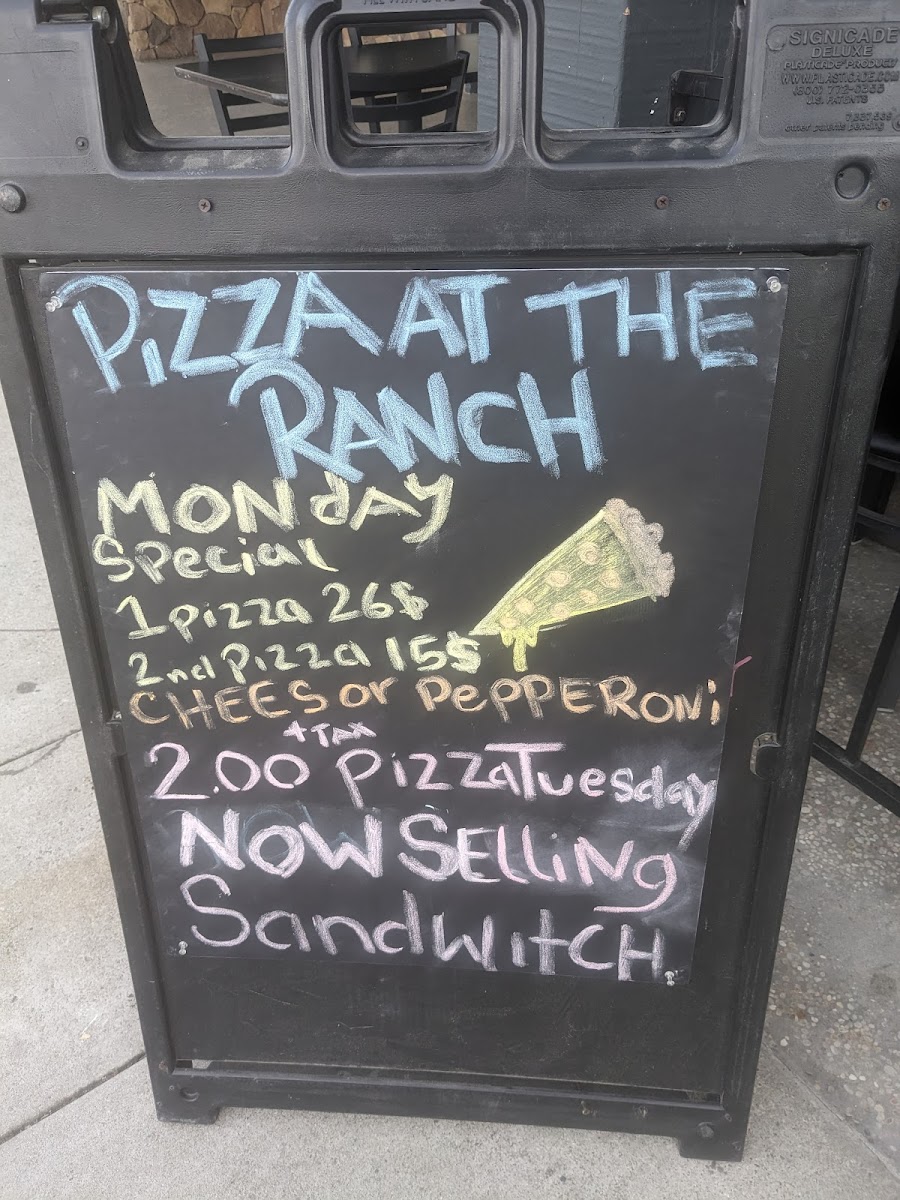 SIGNICADE
DELUXE
PLASTICADE PRODUCT
WWW.PLASTICADE.COM
U.S. PATENTS
other patents pending
PiZZA AT THE
RANCH
MONdAy
Special
1 pizza 26$
2nd Pizza 15$
CHEES or PePPERONi
+ TAX
2.00 PizzaTuesday
NOW SElliNg
SandwitCH